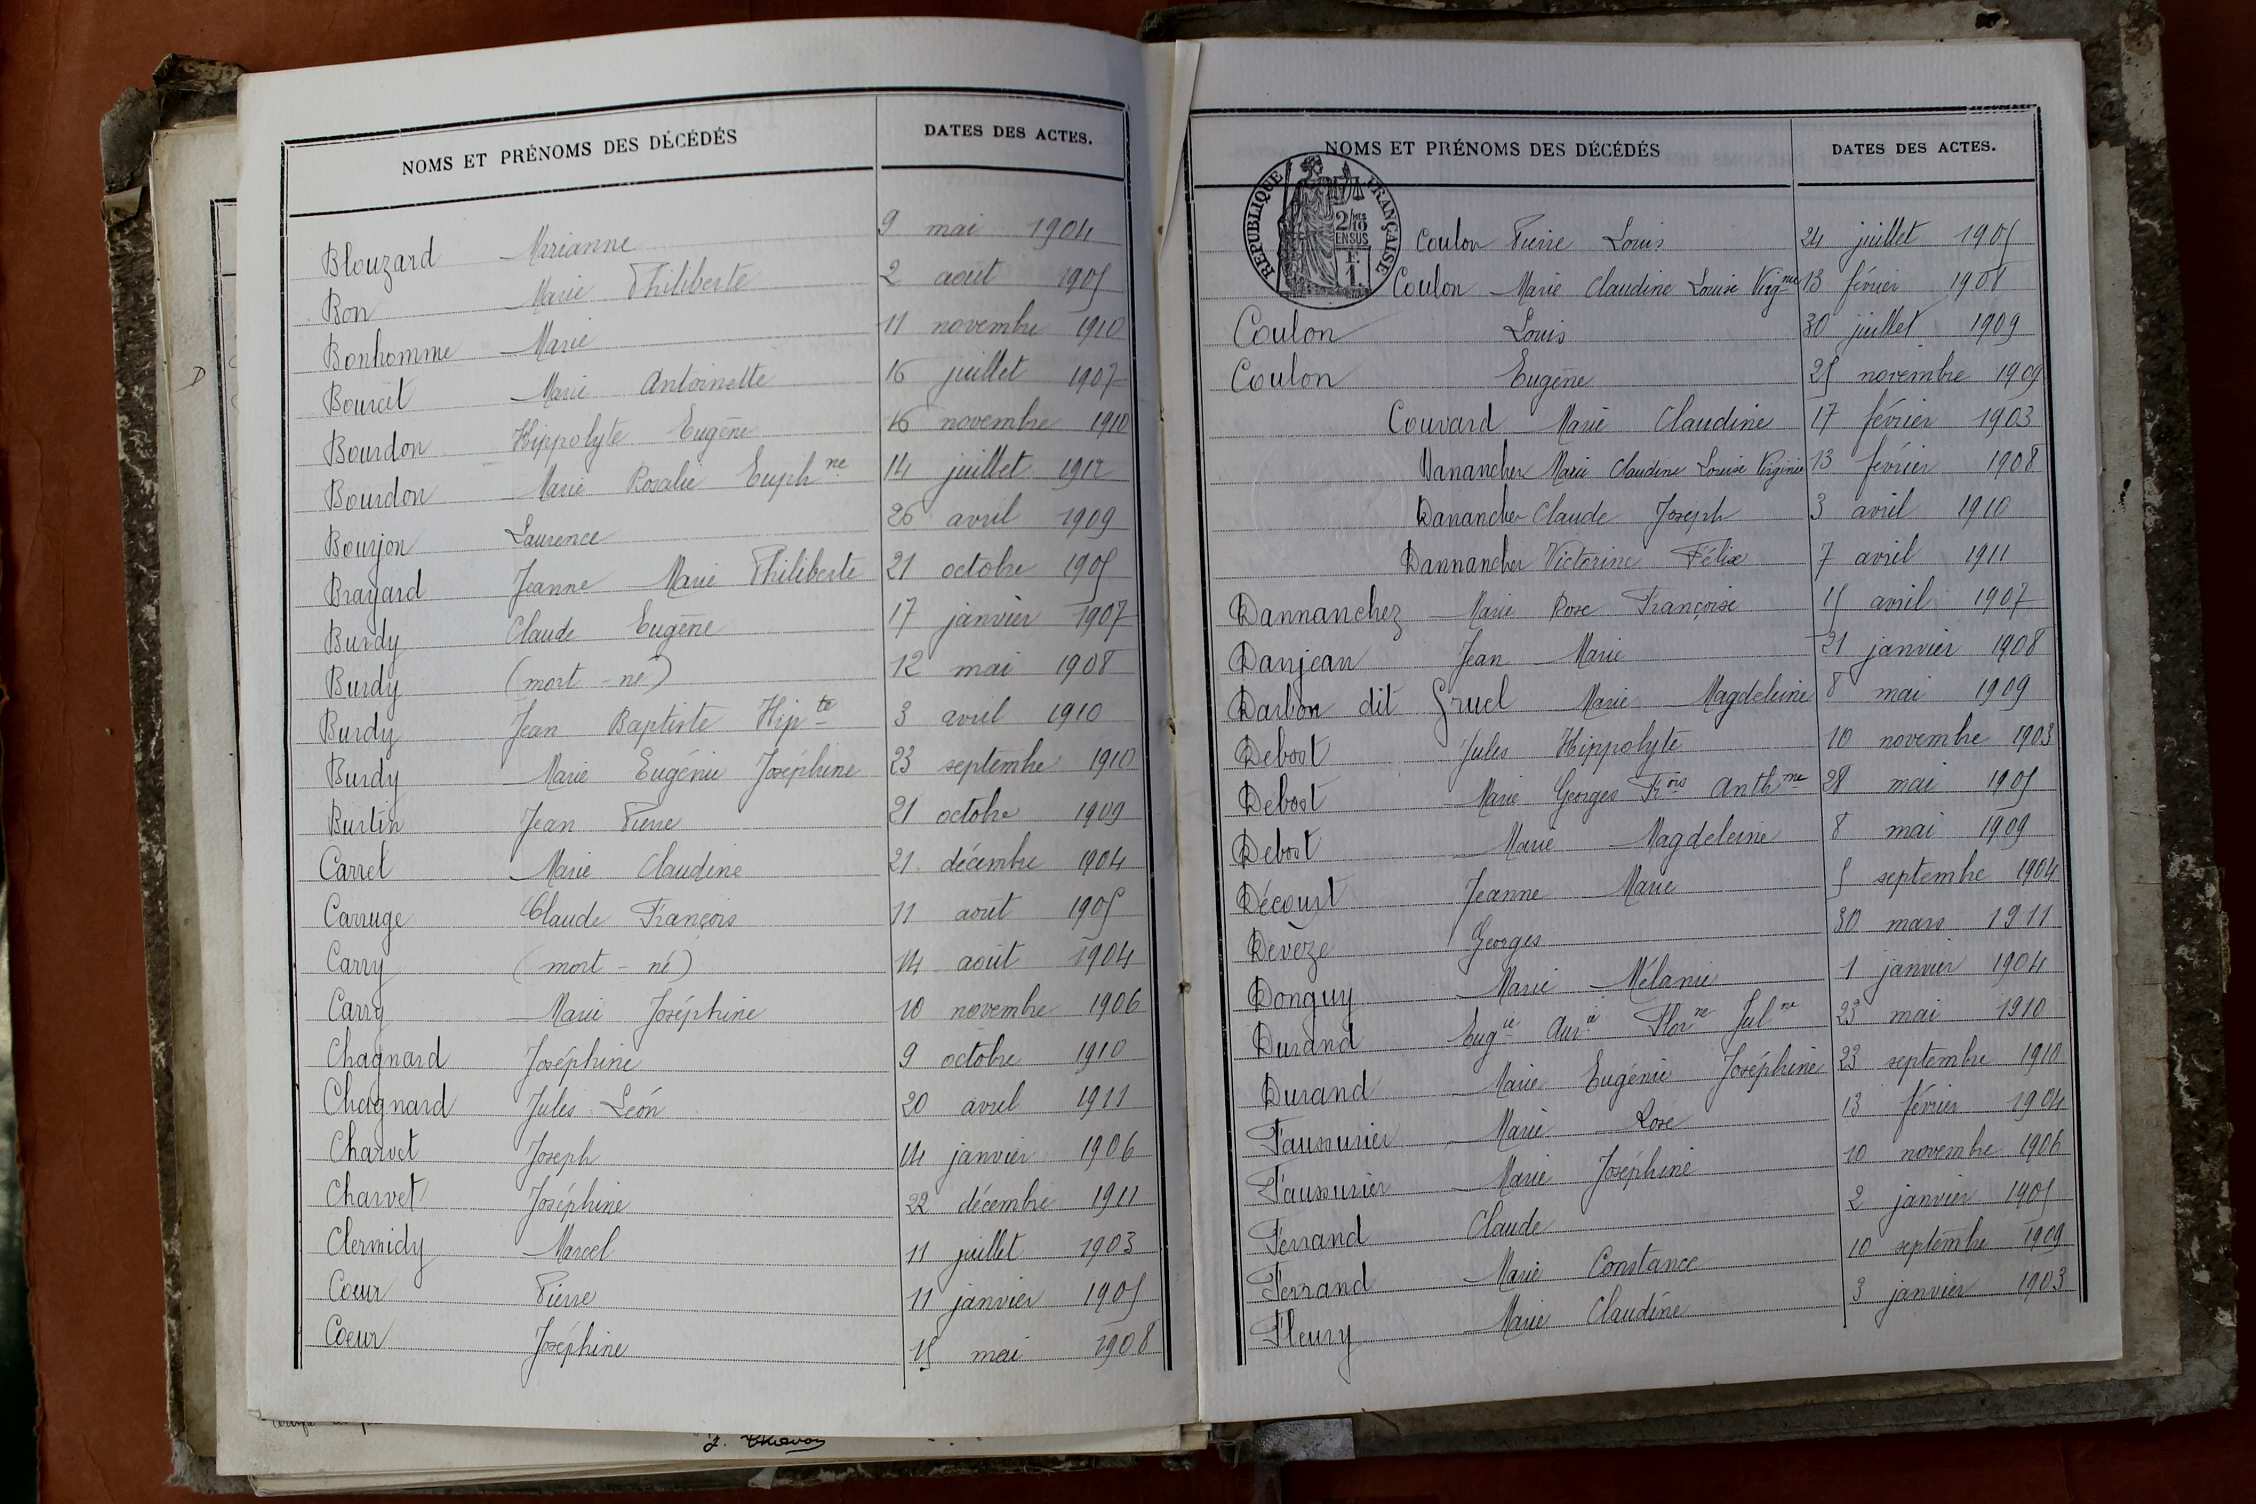 NOMS ET PRÉNOMS DES DÉCÉDÉS DATES DES ACTES.
Blouzard Marianne 9 mai 1904
Bon Marie Philiberte 2 août 1905
Bonhomme Marie 11 novembre 1910
Bourcet Marie Antoinette 16 juillet 1907
Bourdon Hippolyte Eugène 16 novembre 1910
Bourdon Marie Rosalie Euphne 14 juillet 1912
Bourjon Laurence 26 avril 1909
Brayard Jeanne Marie Philiberte 21 octobre 1905
Burdy Claude Eugène 17 janvier 1907
Burdy (mort-né) 12 mai 1908
Burdy Jean Baptiste Hipte 3 avril 1910
Burdy Marie Eugénie Joséphine 23 septembre 1910
Burtin Jean Pierre 21 octobre 1909
Carrel Marie Claudine 21 décembre 1904
Carruge Claude François 11 août 1905
Carry (mort-né) 14 août 1904
Carry Marie Joséphine 10 novembre 1906
Chagnard Joséphine 9 octobre 1910
Chagnard Jules Léon 20 avril 1911
Charvet Joseph 14 janvier 1906
Charvet Joséphine 22 décembre 1911
Clermidy Marcel 11 juillet 1903
Coeur Pierre 11 janvier 1905
Coeur Joséphine 15 mai 1908
D
J. Thévon
NOMS ET PRÉNOMS DES DÉCÉDÉS DATES DES ACTES.
RÉPUBLIQUE FRANÇAISE
2/10 EN SUS
1F.
Coulon Pierre Louis 24 juillet 1905
Coulon Marie Claudine Louise Virgnie 13 février 1908
Coulon Louis 30 juillet 1909
Coulon Eugène 25 novembre 1909
Couvard Marie Claudine 17 février 1903
Danancher Marie Claudine Louise Virginie 13 février 1908
Danancher Claude Joseph 3 avril 1910
Dannancher Victorine Félix 7 avril 1911
Dannanchez Marie Rose Françoise 15 avril 1907
Danjean Jean Marie 21 janvier 1908
Darbon dit Gruel Marie Magdeleine 8 mai 1909
Debost Jules Hippolyte 10 novembre 1903
Debost Marie Georges Frois Anthme 28 mai 1905
Debost Marie Magdeleine 8 mai 1909
Décourt Jeanne Marie 5 septembre 1904
Devèze Georges 30 mars 1911
Donguy Marie Mélanie 1 janvier 1904
Durand Eugie Aurie Florne Julne 23 mai 1910
Durand Marie Eugénie Joséphine 23 septembre 1910
Faussurier Marie Rose 13 février 1904
Faussurier Marie Joséphine 10 novembre 1906
Ferrand Claude 2 janvier 1905
Ferrand Marie Constance 10 septembre 1909
Fleury Marie Claudine 3 janvier 1903